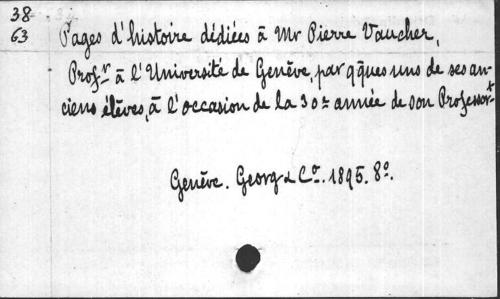 38
63
Pages d'histoire dédiées à Mr Pierre Vaucher,
Profr à l'Université de Genève, par qques uns de ses an-
ciens élèves, à l'occasion de la 30e année de son Professort
Genève. Georg & Co. 1895. 8o.